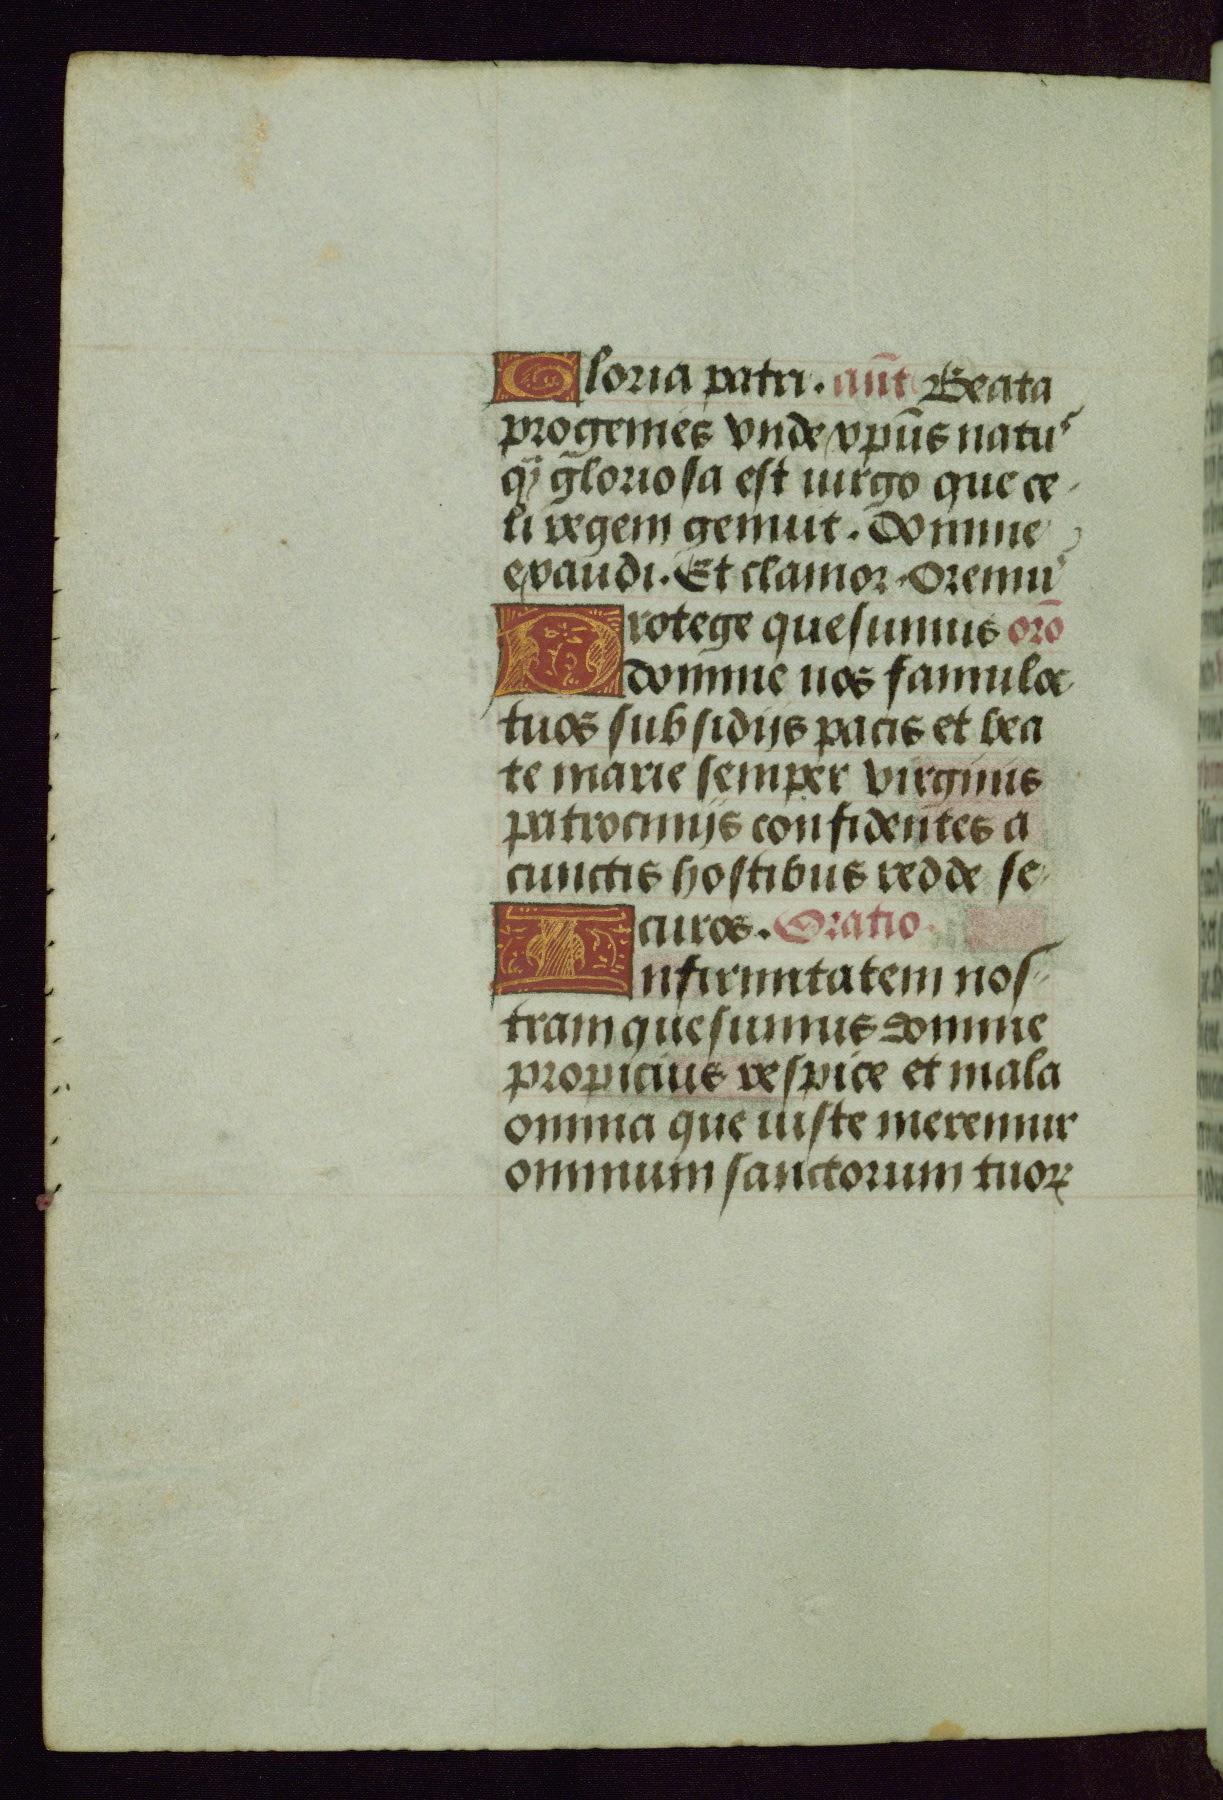 Gloria patri. añt Beata
progenies vnde xpūs natus
qȝ gloriosa est uirgo que ce
li regem genuit. Domine
exaudi. Et clamor. Oremus
Protege quesumus oro̅
domine nos famulos
tuos subsidijs pacis et bea
te marie semper virginis
patrocinijs confidentes a
cunctis hostibus redde se
curos. Oratio.
Infirmitatem nos
tram quesumus domine
propicius respice et mala
omnia que iuste meremur
omnium sanctorum tuoꝝ